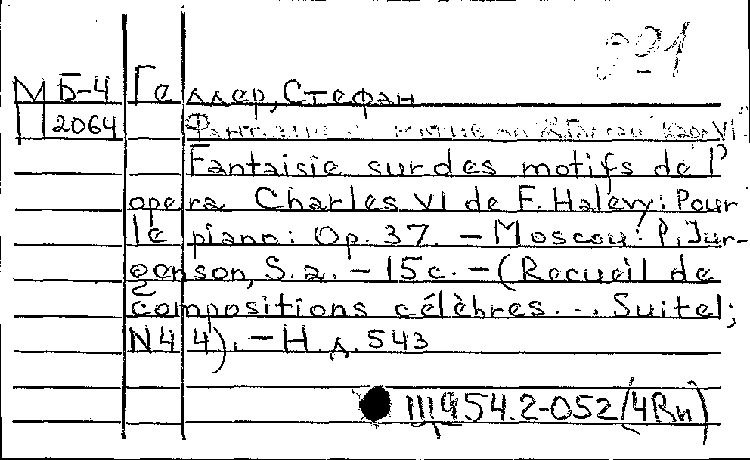 991
М Б-4 Геллер, Стефан
2064
Fantaisie sur des motifs de l'
opera Charles VI de F. Halevy: Pour
le piano: Op. 37. – Moscou: P. Jur-
genson, S. a. – 15 c. – (Recueil de
compositions célèbres... Suite 1;
N 44). – Н. д. 543
Ш 954.2-052 (4Rn)